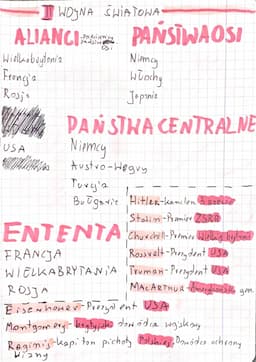 II WOJNA ŚWIATOWA
ALIANCI PAŃSTWA OSI
Wielkabrytania Niemcy
Francja Włochy
Rosja Japonia
PAŃSTWA CENTRALNE
USA Niemcy
Austro-Węgry
Turcja
Bułgaria
ENTENTA
FRANCJA
WIELKABRYTANIA
ROSJA
Hitler-kanclerz
Stalin-Premier ZSRR
Churchill-Premier Wielkiej Brytanii
Roosvelt-Prezydent USA
Truman-Prezydent USA
MacARTHUR-Amerykański gen.
Eisenhower-Prezydent USA
Montgomery-brytyjski dowódca wojskowy
Raginis-kapitan piechoty Polskiej, Dowódca obrony
Wizny